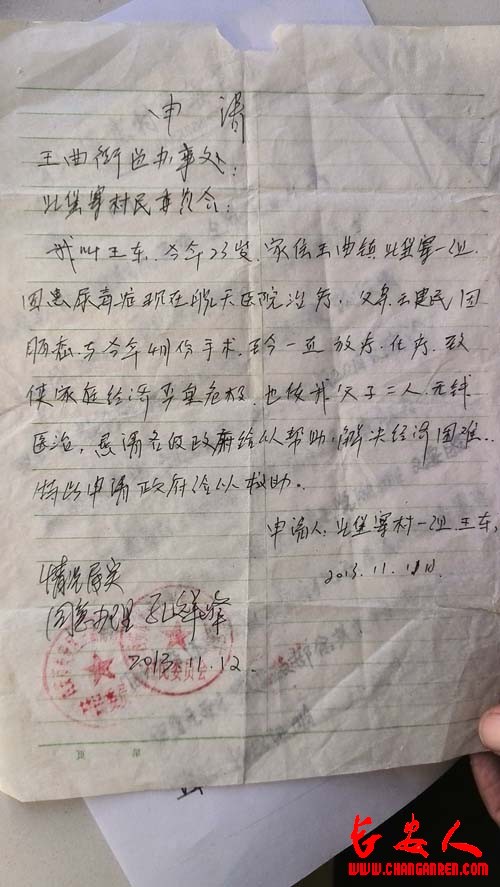 申请
王曲街道办事处:
北堡寨村民委员会:
我叫王东.今年23岁.家住王曲镇北堡寨一组.
因患尿毒症现在航天医院治疗.父亲王建民因
肠癌.与今年4月份手术.至今一直放疗.化疗.致
使家庭经济严重危极.也使我父子二人.无钱
医治,恳请各级政府给以帮助,解决经济困难..
特此申请政府给以救助。
申请人:北堡寨村一组.王东.
2013.11.
情况属实
同意办理
2013.11.12.
村民委员会
页 第
长安人
WWW.CHANGANREN.COM